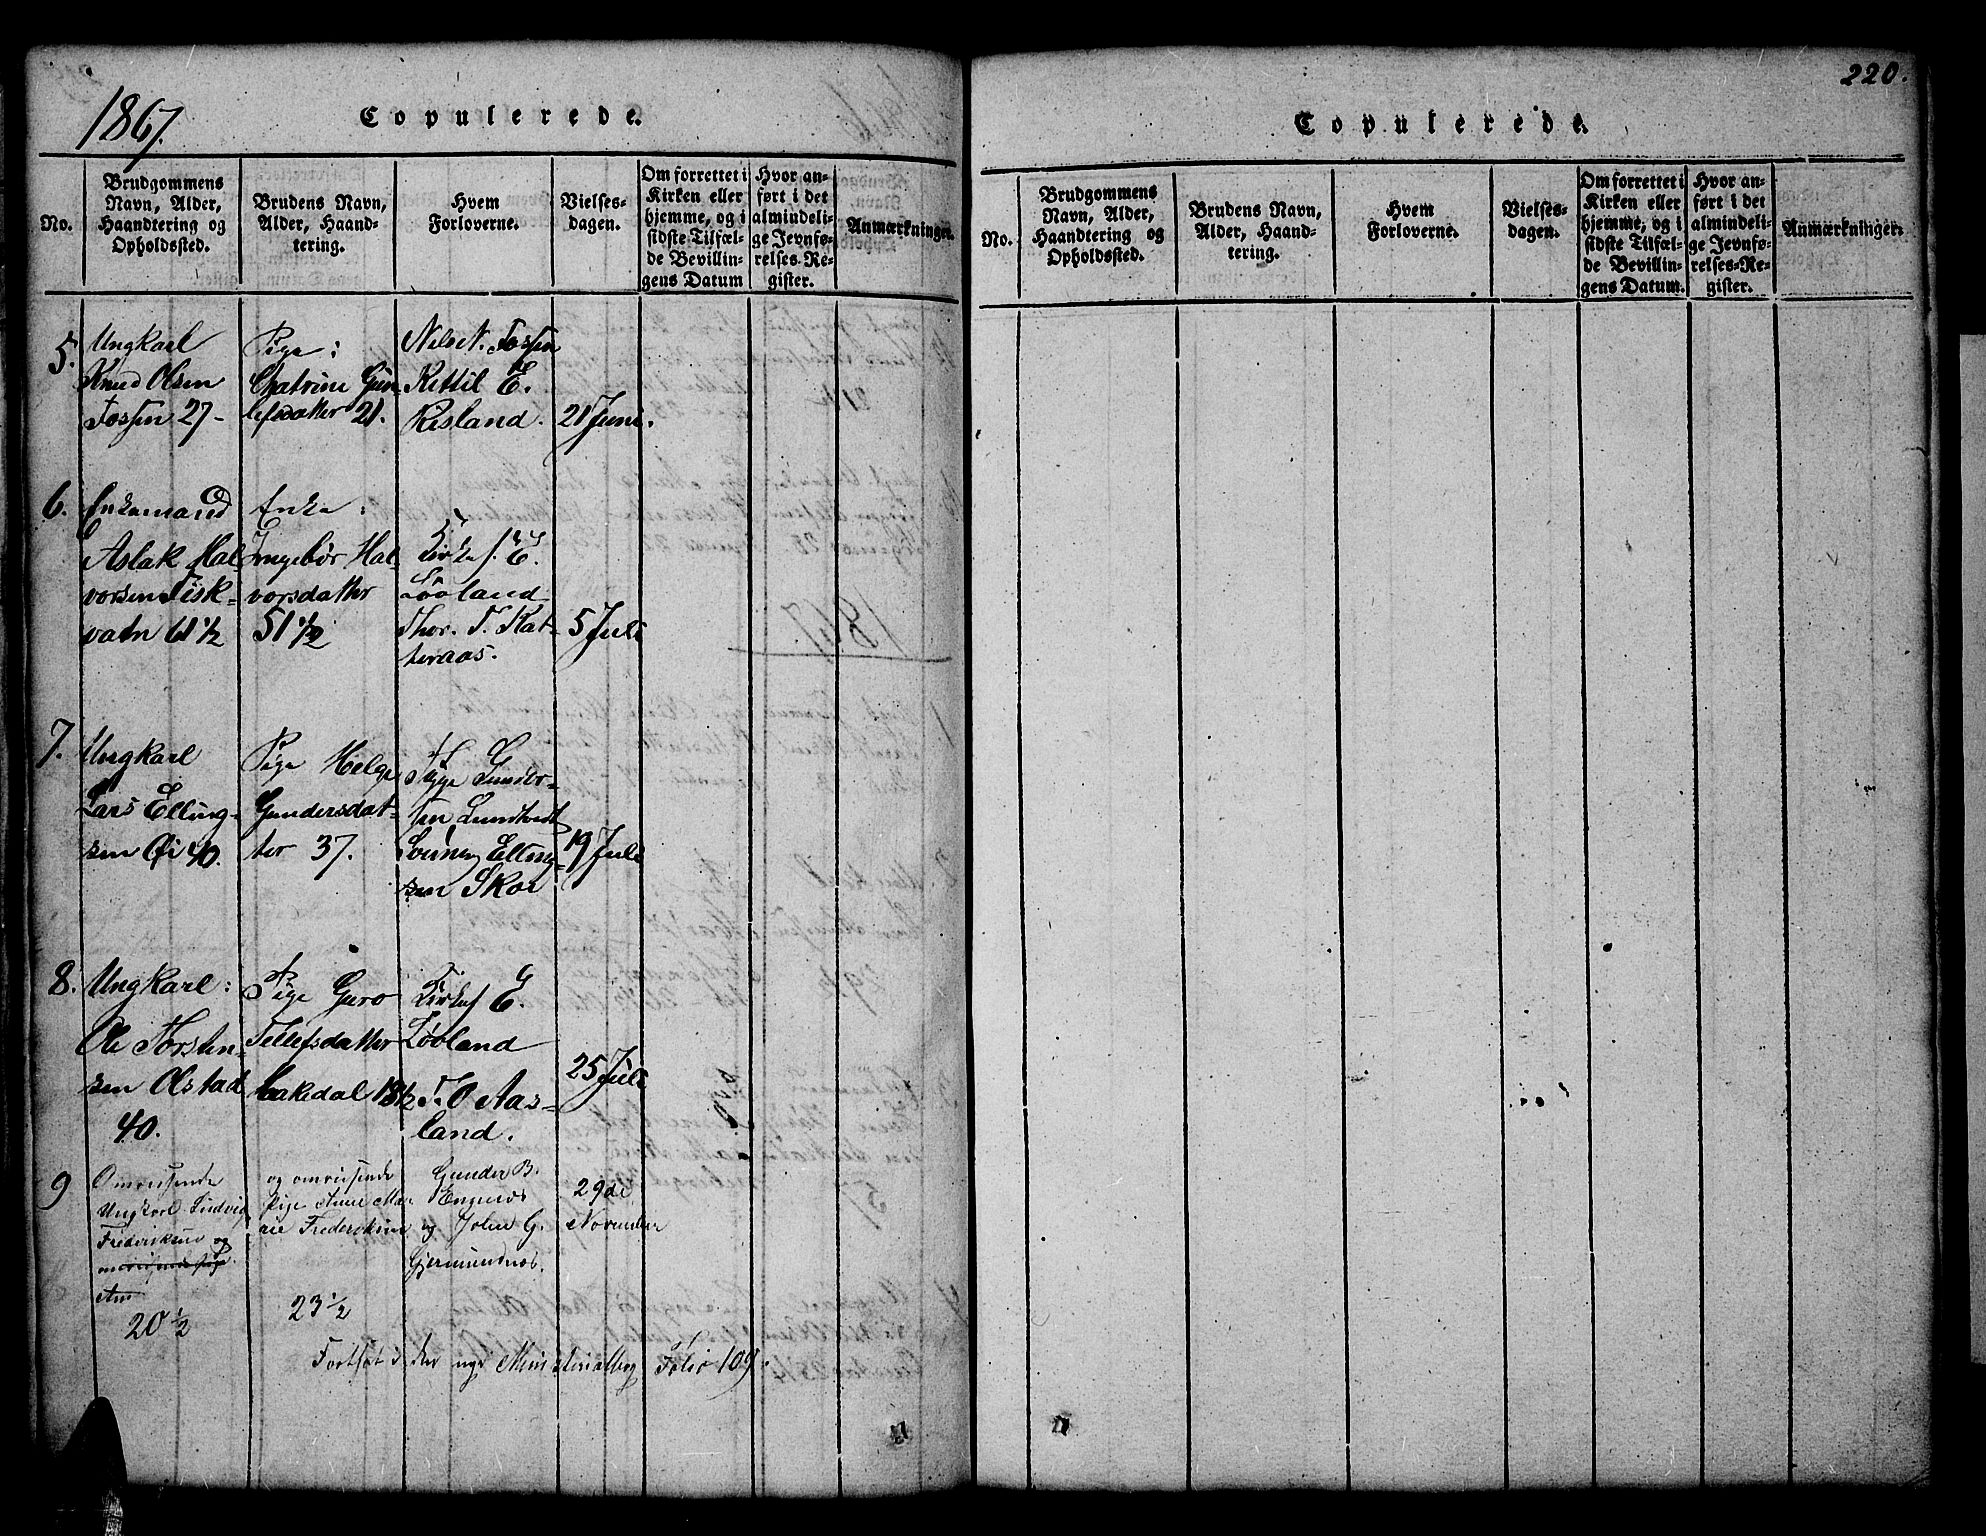 1867.
Copulerede.
No.
Brudgommens
Navn, Alder,
Haandtering og
Opholdssted.
Brudens Navn,
Alder, Haand-
tering.
Hvem
Forloverne.
Vielses-
dagen.
Om forrettet i
Kirken eller
hjemme, og i
sidste Tilfæl-
de Bevillin-
gens Datum
Hvor an-
ført i det
almindeli-
ge Jevnfø-
relses-Re-
gister.
Anmærkninger.
5.
Ungkarl
Knud Olsen
Fossen 27-
Pige:
Chatrine Gun-
lefsdatter 21.
Nils N. Fossen
Kettil E.
Risland.
21 Juni.
6.
Enkemand
Aslak Hal-
vorsen Fisk-
vatn 61 ½
Enke:
Ingebor Hal-
vorsdatter
51 ½
E.
Løvland
Thor. T. Kat-
teraas.
5 Juli
7.
Ungkarl
Lars Elling-
sen Øi 40.
Pige Helge
Gundersdat-
ter 37.
Gunder-
sen
Elling-
sen Skoe
19 Juli
8.
Ungkarl:
Ole Torsten-
sen Olstad
40.
Pige Guro
Tellefsdatter
18½
E.
Løvland
T. O Aas-
land.
25 Juli
9
Omreisende
Ungkarl Ludvig
Frederiksen og
omreisende pige
Ane
20 ½
og omreisende
Pige Anne Ma-
rie Frederiksen
23 ½
Gunder B.
Engenæs
og John G.
Gjermundnæs.
29de
November
Fortsat i den nye Ministerialbog Folio 109.
220.
Copulerede.
No.
Brudgommens
Navn, Alder,
Haandtering og
Opholdssted.
Brudens Navn,
Alder, Haand-
tering.
Hvem
Forloverne.
Vielses-
dagen.
Om forrettet i
Kirken eller
hjemme, og i
sidste Tilfæl-
de Bevillin-
gens Datum.
Hvor an-
ført i det
almindeli-
ge Jevnfø-
relses-Re-
gister.
Anmærkninger.